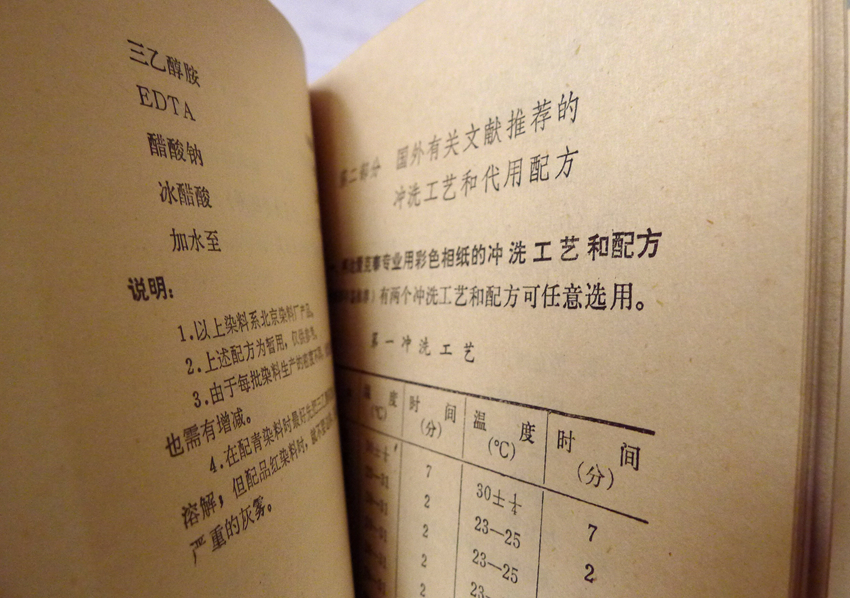 三乙醇胺
EDTA
醋酸钠
冰醋酸
加水至
说明：
1.以上染料系北京染料厂产品。
2.上述配方为暂用，仅供参考。
3.由于每批染料生产的
也需有增减。
4.在配青染料时最好先
溶解；但配品红染料时，
严重的灰雾。
第二部分 国外有关文献推荐的
冲洗工艺和代用配方
专业用彩色相纸的冲洗工艺和配方
有两个冲洗工艺和配方可任意选用。
第一冲洗工艺
温度 时间 温度 时间
(℃) (分) (℃) (分)
7 30±¼ 7
2 23—25 2
2 23—25
2
2